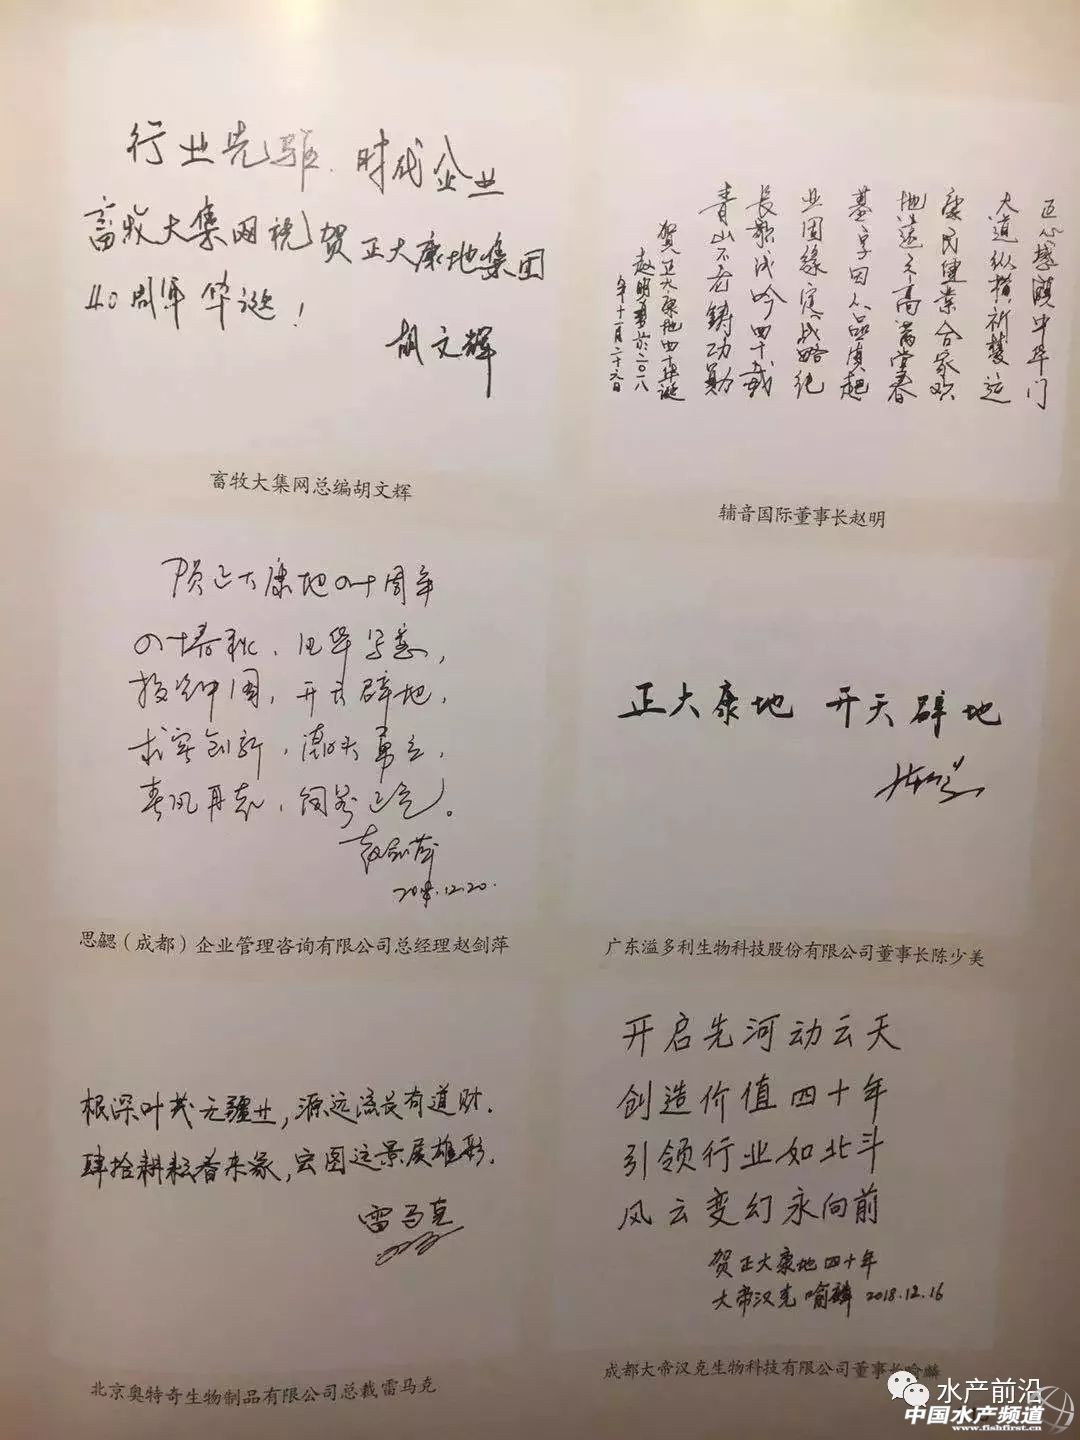 行业先驱、时代企业
畜牧大集网祝贺正大康地集团
40周年华诞！
胡文辉
畜牧大集网总编胡文辉
正心撼颐中华门
大道纵横祈慧运
康民建业合家欢
地造天高满堂春
基字因人品质起
业固缘宏战略纯
长歌浅吟四十载
青山不老铸功勋
贺正大康地四十华诞
赵明于二〇一八
年十一月二十六日
辅音国际董事长赵明
贺正大康地四十周年
四十春秋、风华写意，
投资中国，开天辟地，
求实创新，潮头勇立，
春风再起，饲界正气。
赵剑萍
2018.12.20.
思勰（成都）企业管理咨询有限公司总经理赵剑萍
正大康地 开天辟地
广东溢多利生物科技股份有限公司董事长陈少美
根深叶茂无疆业，源远流长有道财.
肆拾耕耘春来象，宏图远景展雄彩.
雷马克
北京奥特奇生物制品有限公司总裁雷马克
开启先河动云天
创造价值四十年
引领行业如北斗
风云变幻永向前
贺正大康地四十年
大帝汉克喻麟 2018.12.16
成都大帝汉克生物科技有限公司董事长喻麟
水产前沿
中国水产频道
www.fishfirst.cn